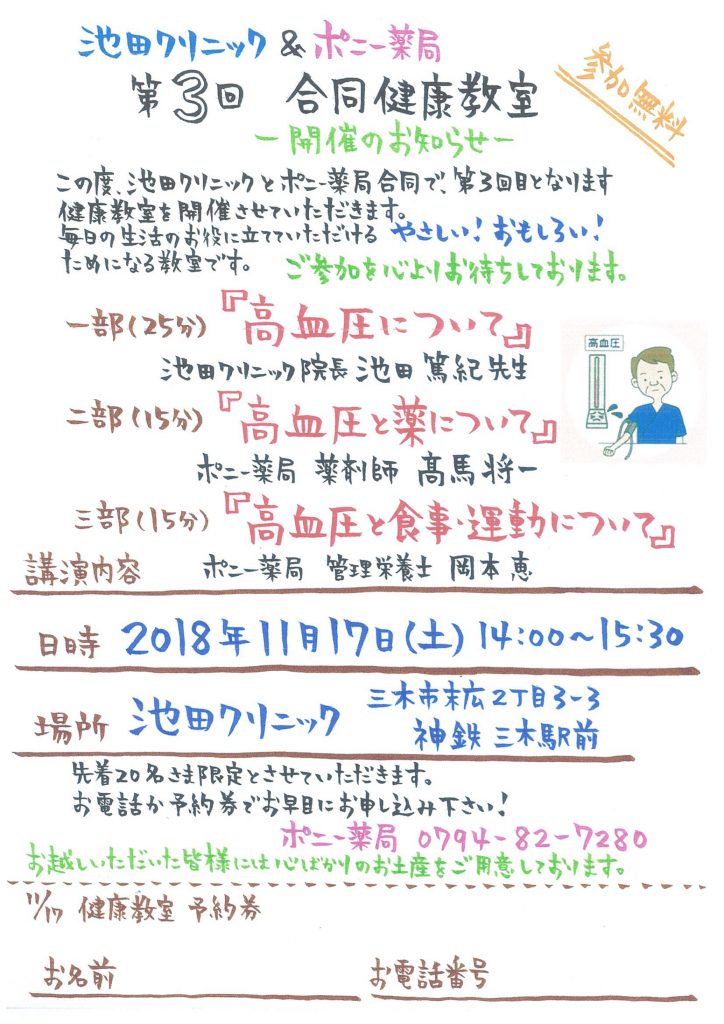 池田クリニック & ポニー薬局
参加無料
第3回 合同健康教室
ー開催のお知らせー
この度、池田クリニックとポニー薬局合同で、第3回目となります
健康教室を開催させていただきます。
毎日の生活のお役に立てていただける やさしい!おもしろい!
ためになる教室です。 ご参加を心よりお待ちしております。
一部(25分)『高血圧について』
池田クリニック院長 池田 篤紀 先生
高血圧
二部(15分)『高血圧と薬について』
ポニー薬局 薬剤師 髙馬 将一
三部(15分)『高血圧と食事・運動について』
講演内容 ポニー薬局 管理栄養士 岡本 恵
日時 2018年11月17日(土) 14:00〜15:30
場所 池田クリニック 三木市末広2丁目3-3
神鉄 三木駅前
先着20名さま限定とさせていただきます。
お電話か予約券でお早目にお申し込み下さい!
ポニー薬局 0794-82-7280
お越しいただいた皆様には心ばかりのお土産をご用意しております。
11/17 健康教室 予約券
お名前 お電話番号